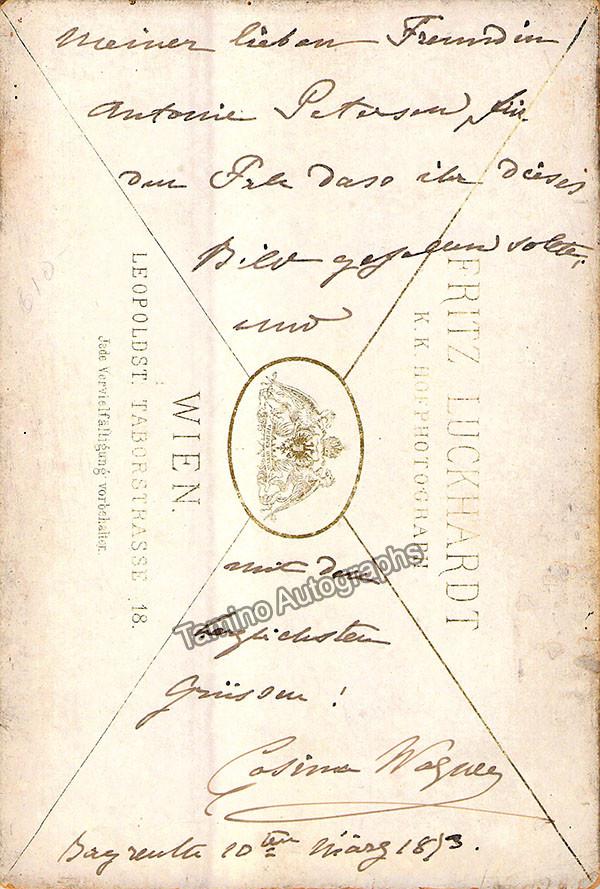 Meiner lieben Freundin
Antonie Petersen für
den Fall dass ihr dieses
Bild gefallen sollte,
und
mit den
herzlichsten
Grüssen!
Cosima Wagner
Bayreuth 10ten März 1873.
FRITZ LUCKHARDT
K. K. HOFPHOTOGRAPH
WIEN.
LEOPOLDST. TABORSTRASSE 18.
Jede Vervielfältigung vorbehalten.
610-
Tamino Autographs